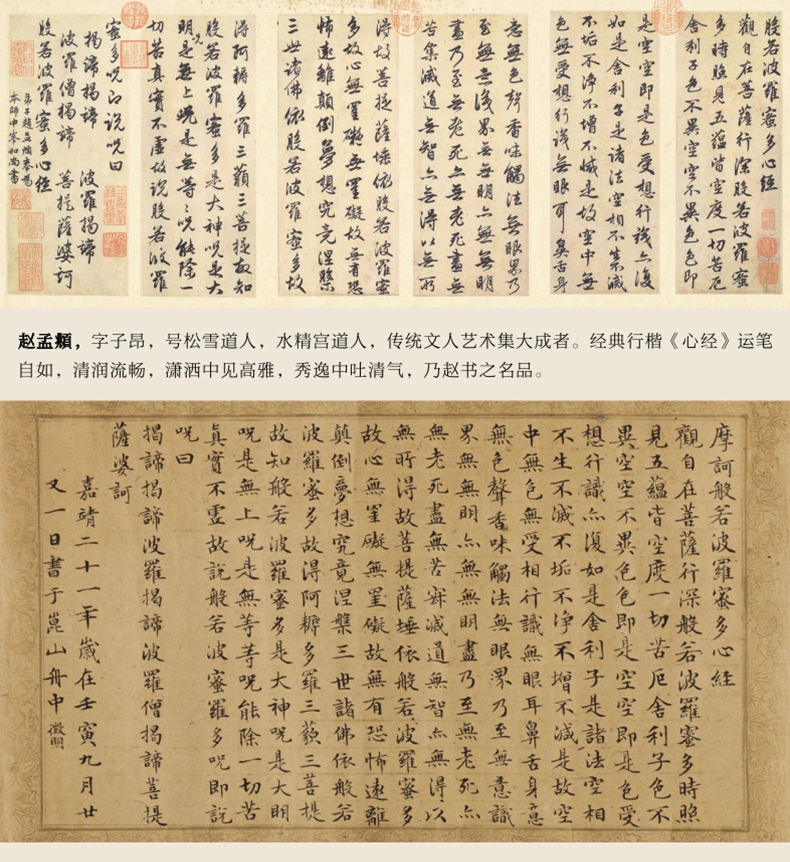 般若波羅蜜多心經
觀自在菩薩行深般若波羅蜜
多時照見五蘊皆空度一切苦厄
舍利子色不異空空不異色色即
是空空即是色受想行識亦復
如是舍利子是諸法空相不生不滅
不垢不淨不增不減是故空中無
色無受想行識無眼耳鼻舌身
意無色聲香味觸法無眼界乃
至無意識界無無明亦無無明
盡乃至無老死亦無老死盡無
苦集滅道無智亦無得以無所
得故菩提薩埵依般若波羅蜜
多故心無罣礙無罣礙故無有恐
怖遠離顛倒夢想究竟涅槃
三世諸佛依般若波羅蜜多故
得阿耨多羅三藐三菩提故知
般若波羅蜜多是大神呪是大
明呪是無上呪是無等等呪能除一
切苦真實不虛故說般若波羅
蜜多呪即說呪曰
揭諦揭諦 波羅揭諦
波羅僧揭諦 菩提薩婆訶
般若波羅蜜多心經
弟子趙孟頫奉為
本師中峯和尚書
赵孟頫，字子昂，号松雪道人，水精宫道人，传统文人艺术集大成者。经典行楷《心经》运笔
自如，清润流畅，潇洒中见高雅，秀逸中吐清气，乃赵书之名品。
摩訶般若波羅蜜多心經
觀自在菩薩行深般若波羅蜜多時照
見五蘊皆空度一切苦厄舍利子色不
異空空不異色色即是空空即是色受
想行識亦復如是舍利子是諸法空相
不生不滅不垢不淨不增不減是故空
中無色無受相行識無眼耳鼻舌身意
無色聲香味觸法無眼界乃至無意識
界無無明亦無無明盡乃至無老死亦
無老死盡無苦寂滅道無智亦無得以
無所得故菩提薩埵依般若波羅蜜多
故心無罣礙無罣礙故無有恐怖遠離
顛倒夢想究竟涅槃三世諸佛依般若
波羅蜜多故得阿耨多羅三藐三菩提
故知般若波羅蜜多是大神呪是大明
呪是無上呪是無等等呪能除一切苦
真實不虛故說般若波蜜羅多呪即說
呪曰
揭諦揭諦波羅揭諦波羅僧揭諦菩提
薩婆訶
嘉靖二十一年歲在壬寅九月廿
又一日書于崑山舟中徵明